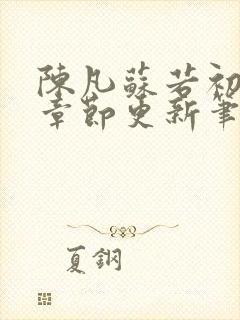 陳凡蘇若初
章節更新筆
夏鋼